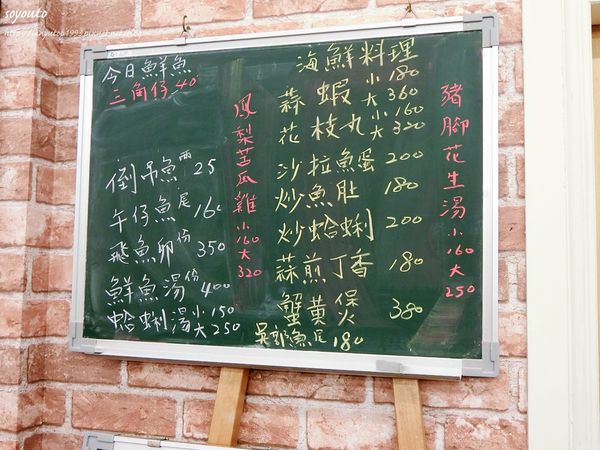 soyouto
今日鮮魚
三角仔 40
倒吊魚 兩 25
午仔魚 尾 160
飛魚卵 份 350
鮮魚湯 份 400
蛤蜊湯 小 150 大 250
鳳梨苦瓜雞 小 160 大 320
海鮮料理
蒜蝦 小 180 大 360
花枝丸 小 160 大 320
沙拉魚蛋 200
炒魚肚 180
炒蛤蜊 200
蒜煎丁香 180
蟹黃保 380
吳郭魚 尾 180
豬腳花生湯 小 160 大 250